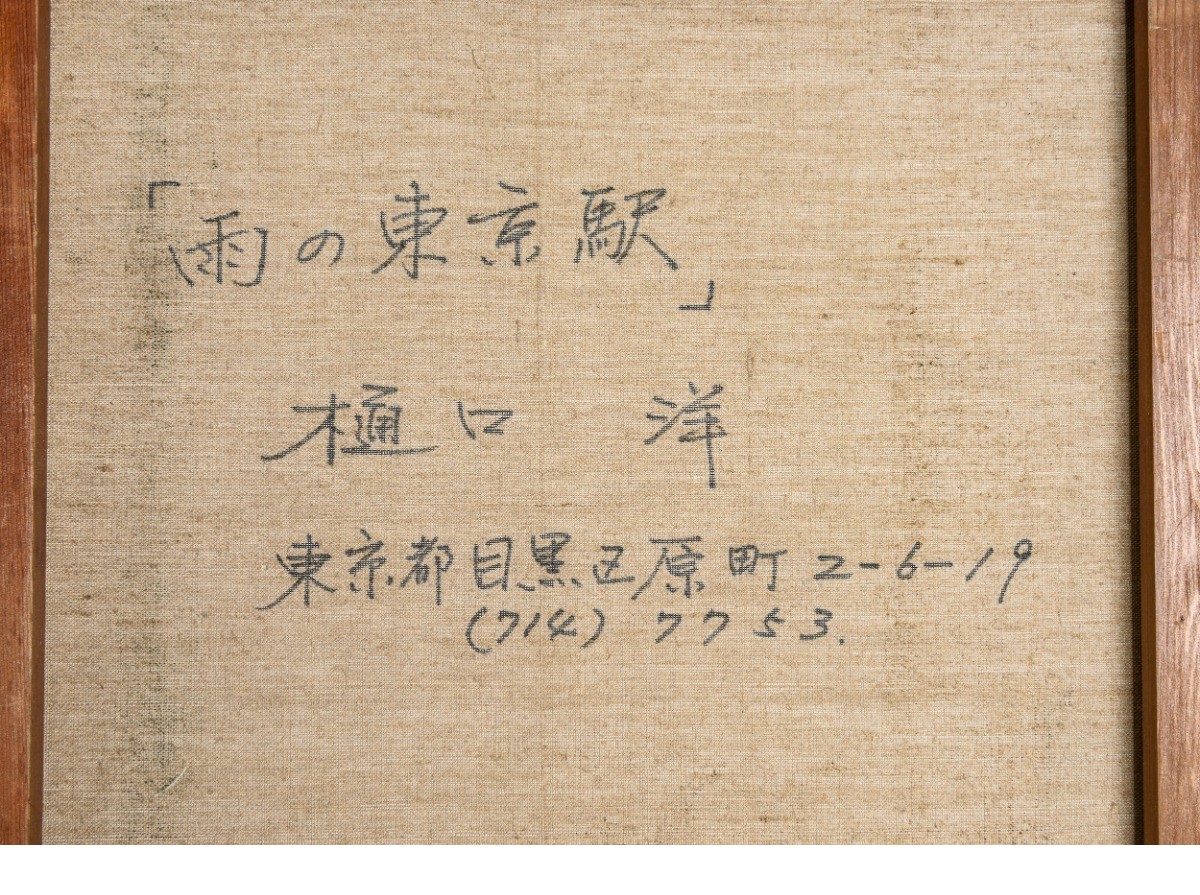 「雨の東京駅」
樋口 洋
東京都目黒区原町2-6-19
(714) 7753.